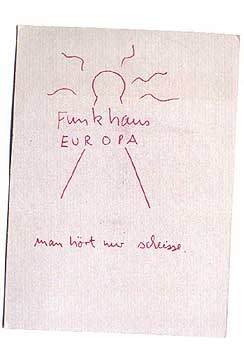 Funkhaus
EUROPA
man hört nur scheisse.